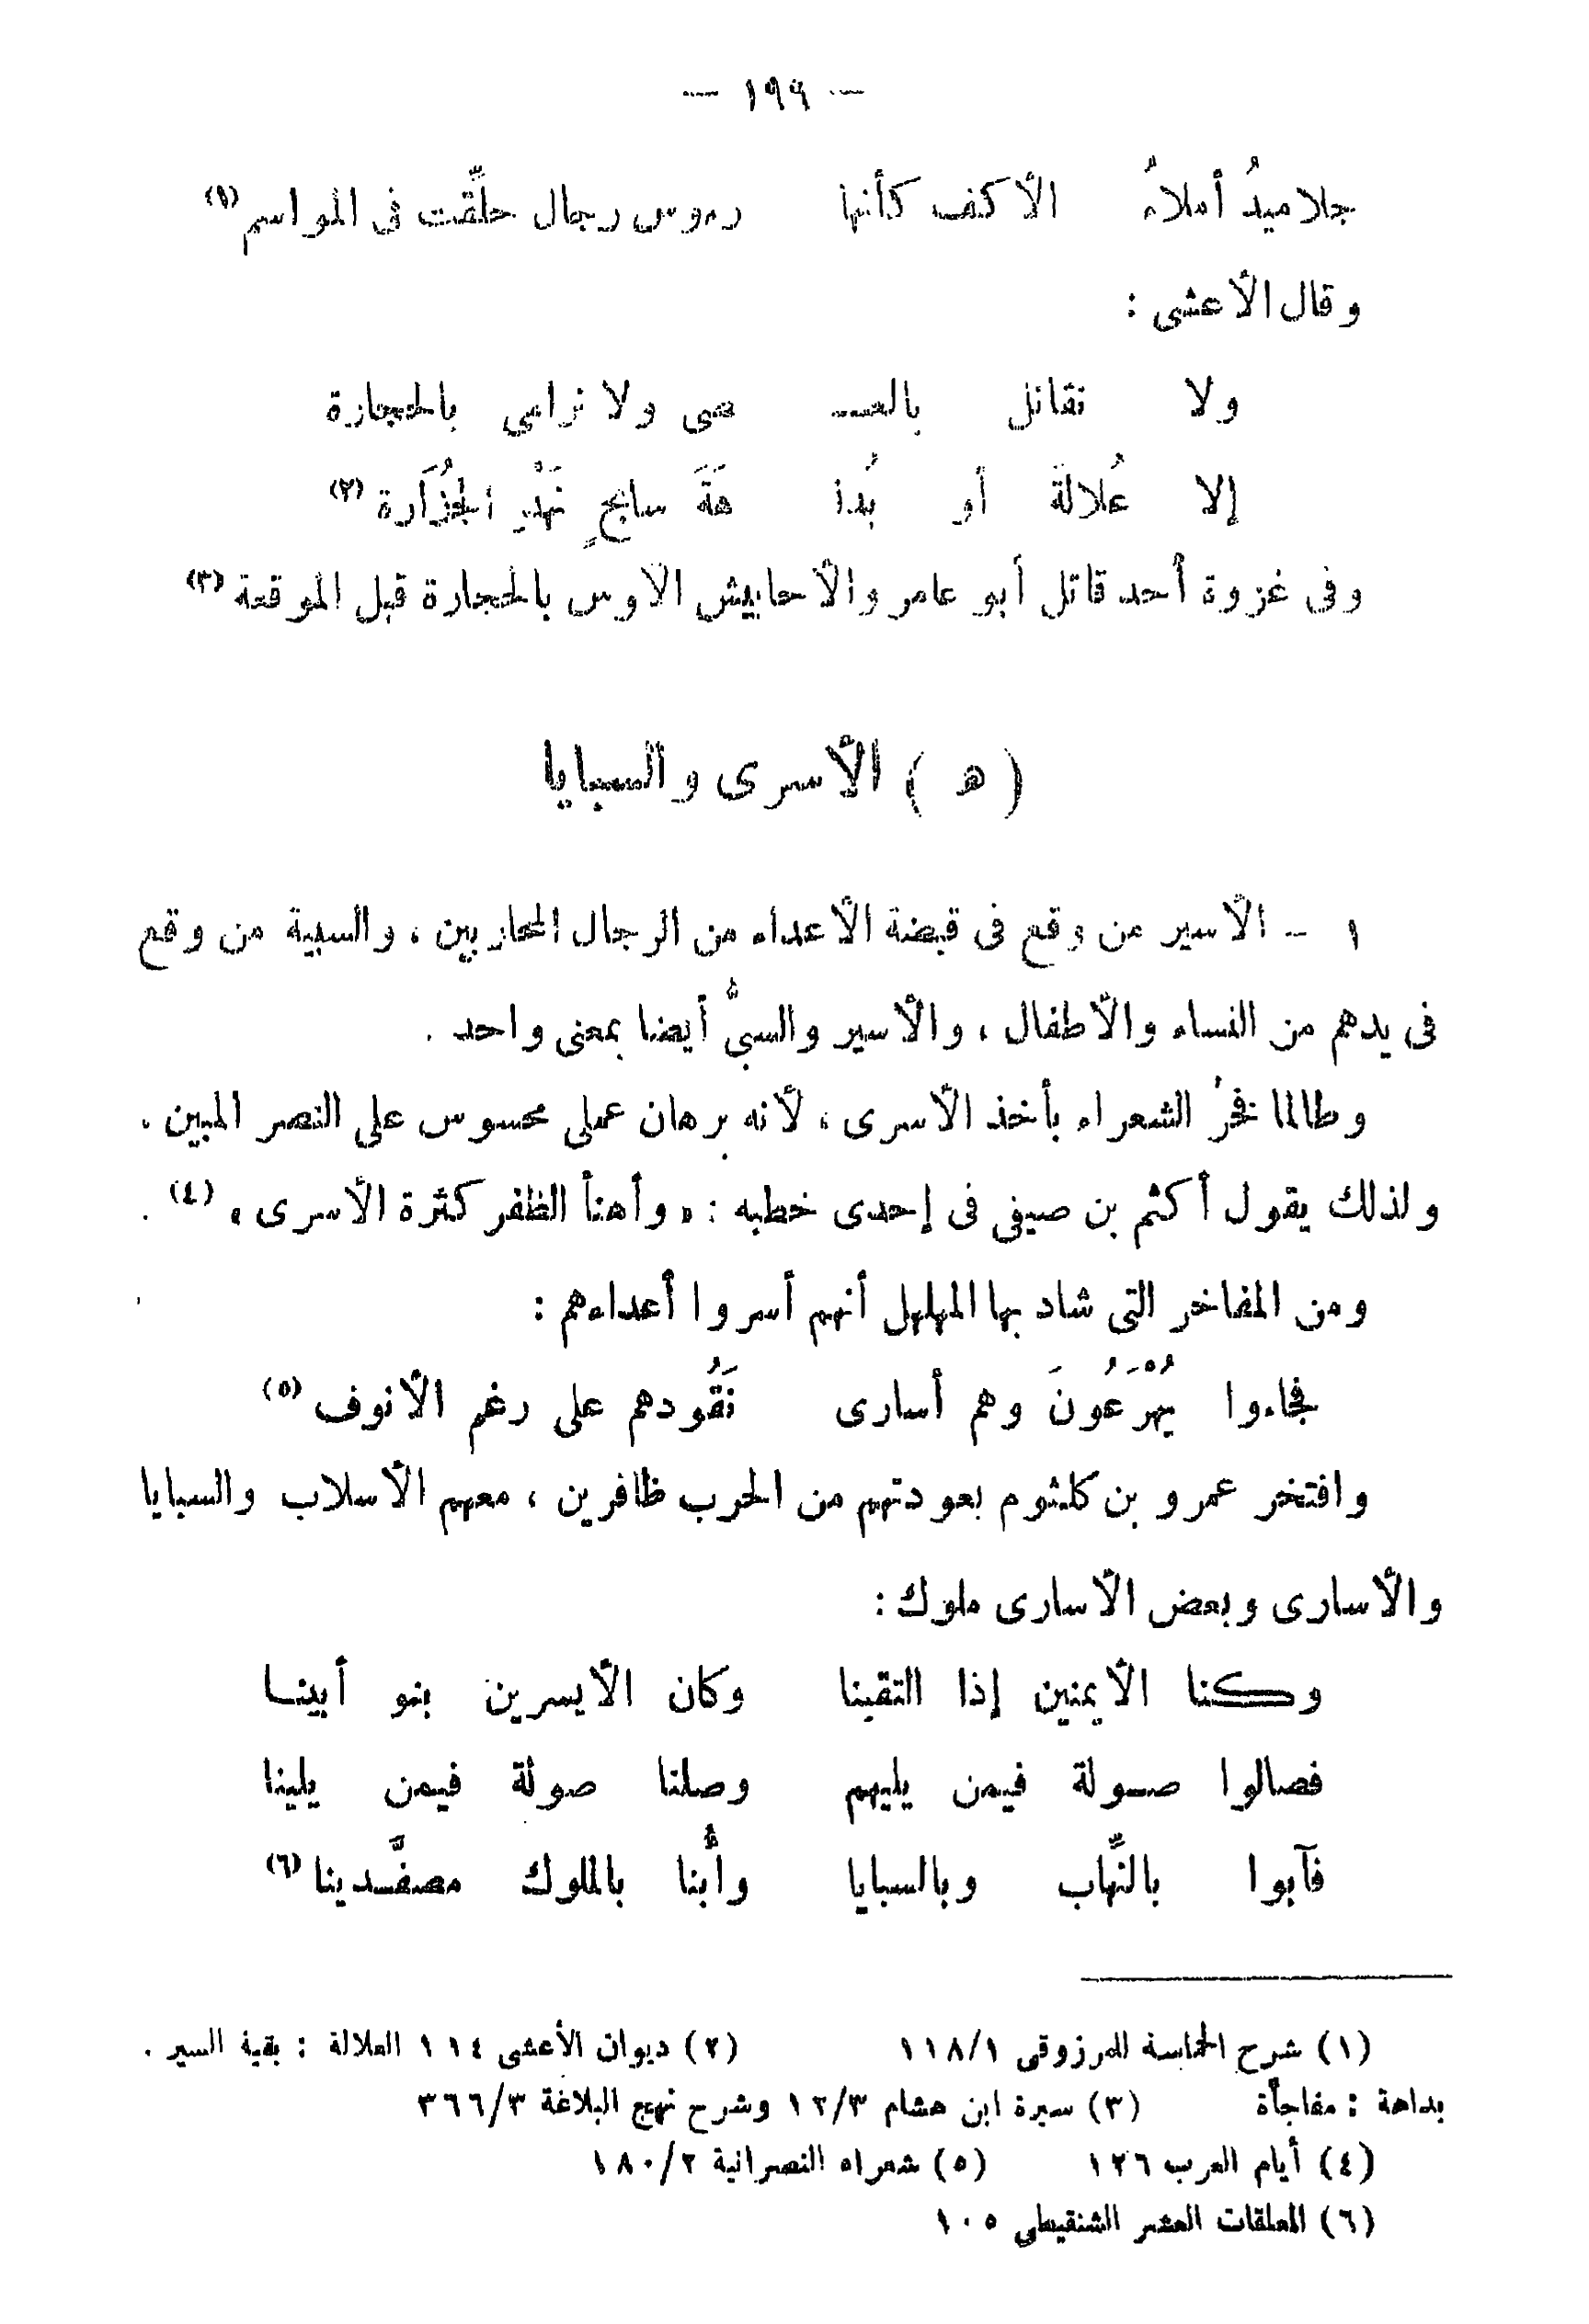 — ١٩٩ —
جلاميدُ أملاءُ الأكف كأنها رءوس رجال حلِّقت فى المواسم (١)
وقال الأعشى :
ولا نقاتل بالعــ صى ولا نرامى بالحجارة
إلا عُلالةَ أو بُدا هَةَ سابحٍ نَهْدِ الجُزَارة (٢)
وفى غزوة أحد قاتل أبو عامر والأحابيش الأوس بالحجارة قبل الموقعة (٣)
( ه ) الأسرى والسبايا
١ — الأسير من وقع فى قبضة الأعداء من الرجال المحاربين ، والسبية من وقع
فى يدهم من النساء والأطفال ، والأسير والسبيُّ أيضا بمعنى واحد .
وطالما فخرُ الشعراء بأخذ الأسرى ، لأنه برهان عملى محسوس على النصر المبين .
ولذلك يقول أكثم بن صيفى فى إحدى خطبه : « وأهنأ الظفر كثرة الأسرى » (٤) .
ومن المفاخر التى شاد بها المهلهل أنهم أسروا أعداءهم :
فجاءوا يُهْرَعُونَ وهم أسارى نَقُودهم على رغم الأنوف (٥)
وافتخر عمرو بن كلثوم بعودتهم من الحرب ظافرين ، معهم الأسلاب والسبايا
والأسارى وبعض الأسارى ملوك :
وكنا الأيمنين إذا التقينا وكان الأيسرين بنو أبينا
فصالوا صولة فيمن يليهم وصلنا صولة فيمن يلينا
فآبوا بالنِّهاب وبالسبايا وأُبنا بالملوك مصفَّدينا (٦)
(١) شرح الحماسة للمرزوقى ١١٨/١ (٢) ديوان الأعشى ١١٤ العلالة : بقية السير .
بداهة : مفاجأة (٣) سيرة ابن هشام ١٢/٣ وشرح نهج البلاغة ٣٦٦/٣
(٤) أيام العرب ١٢٦ (٥) شعراء النصرانية ١٨٠/٢
(٦) المعلقات العشر الشنقيطى ١٠٥